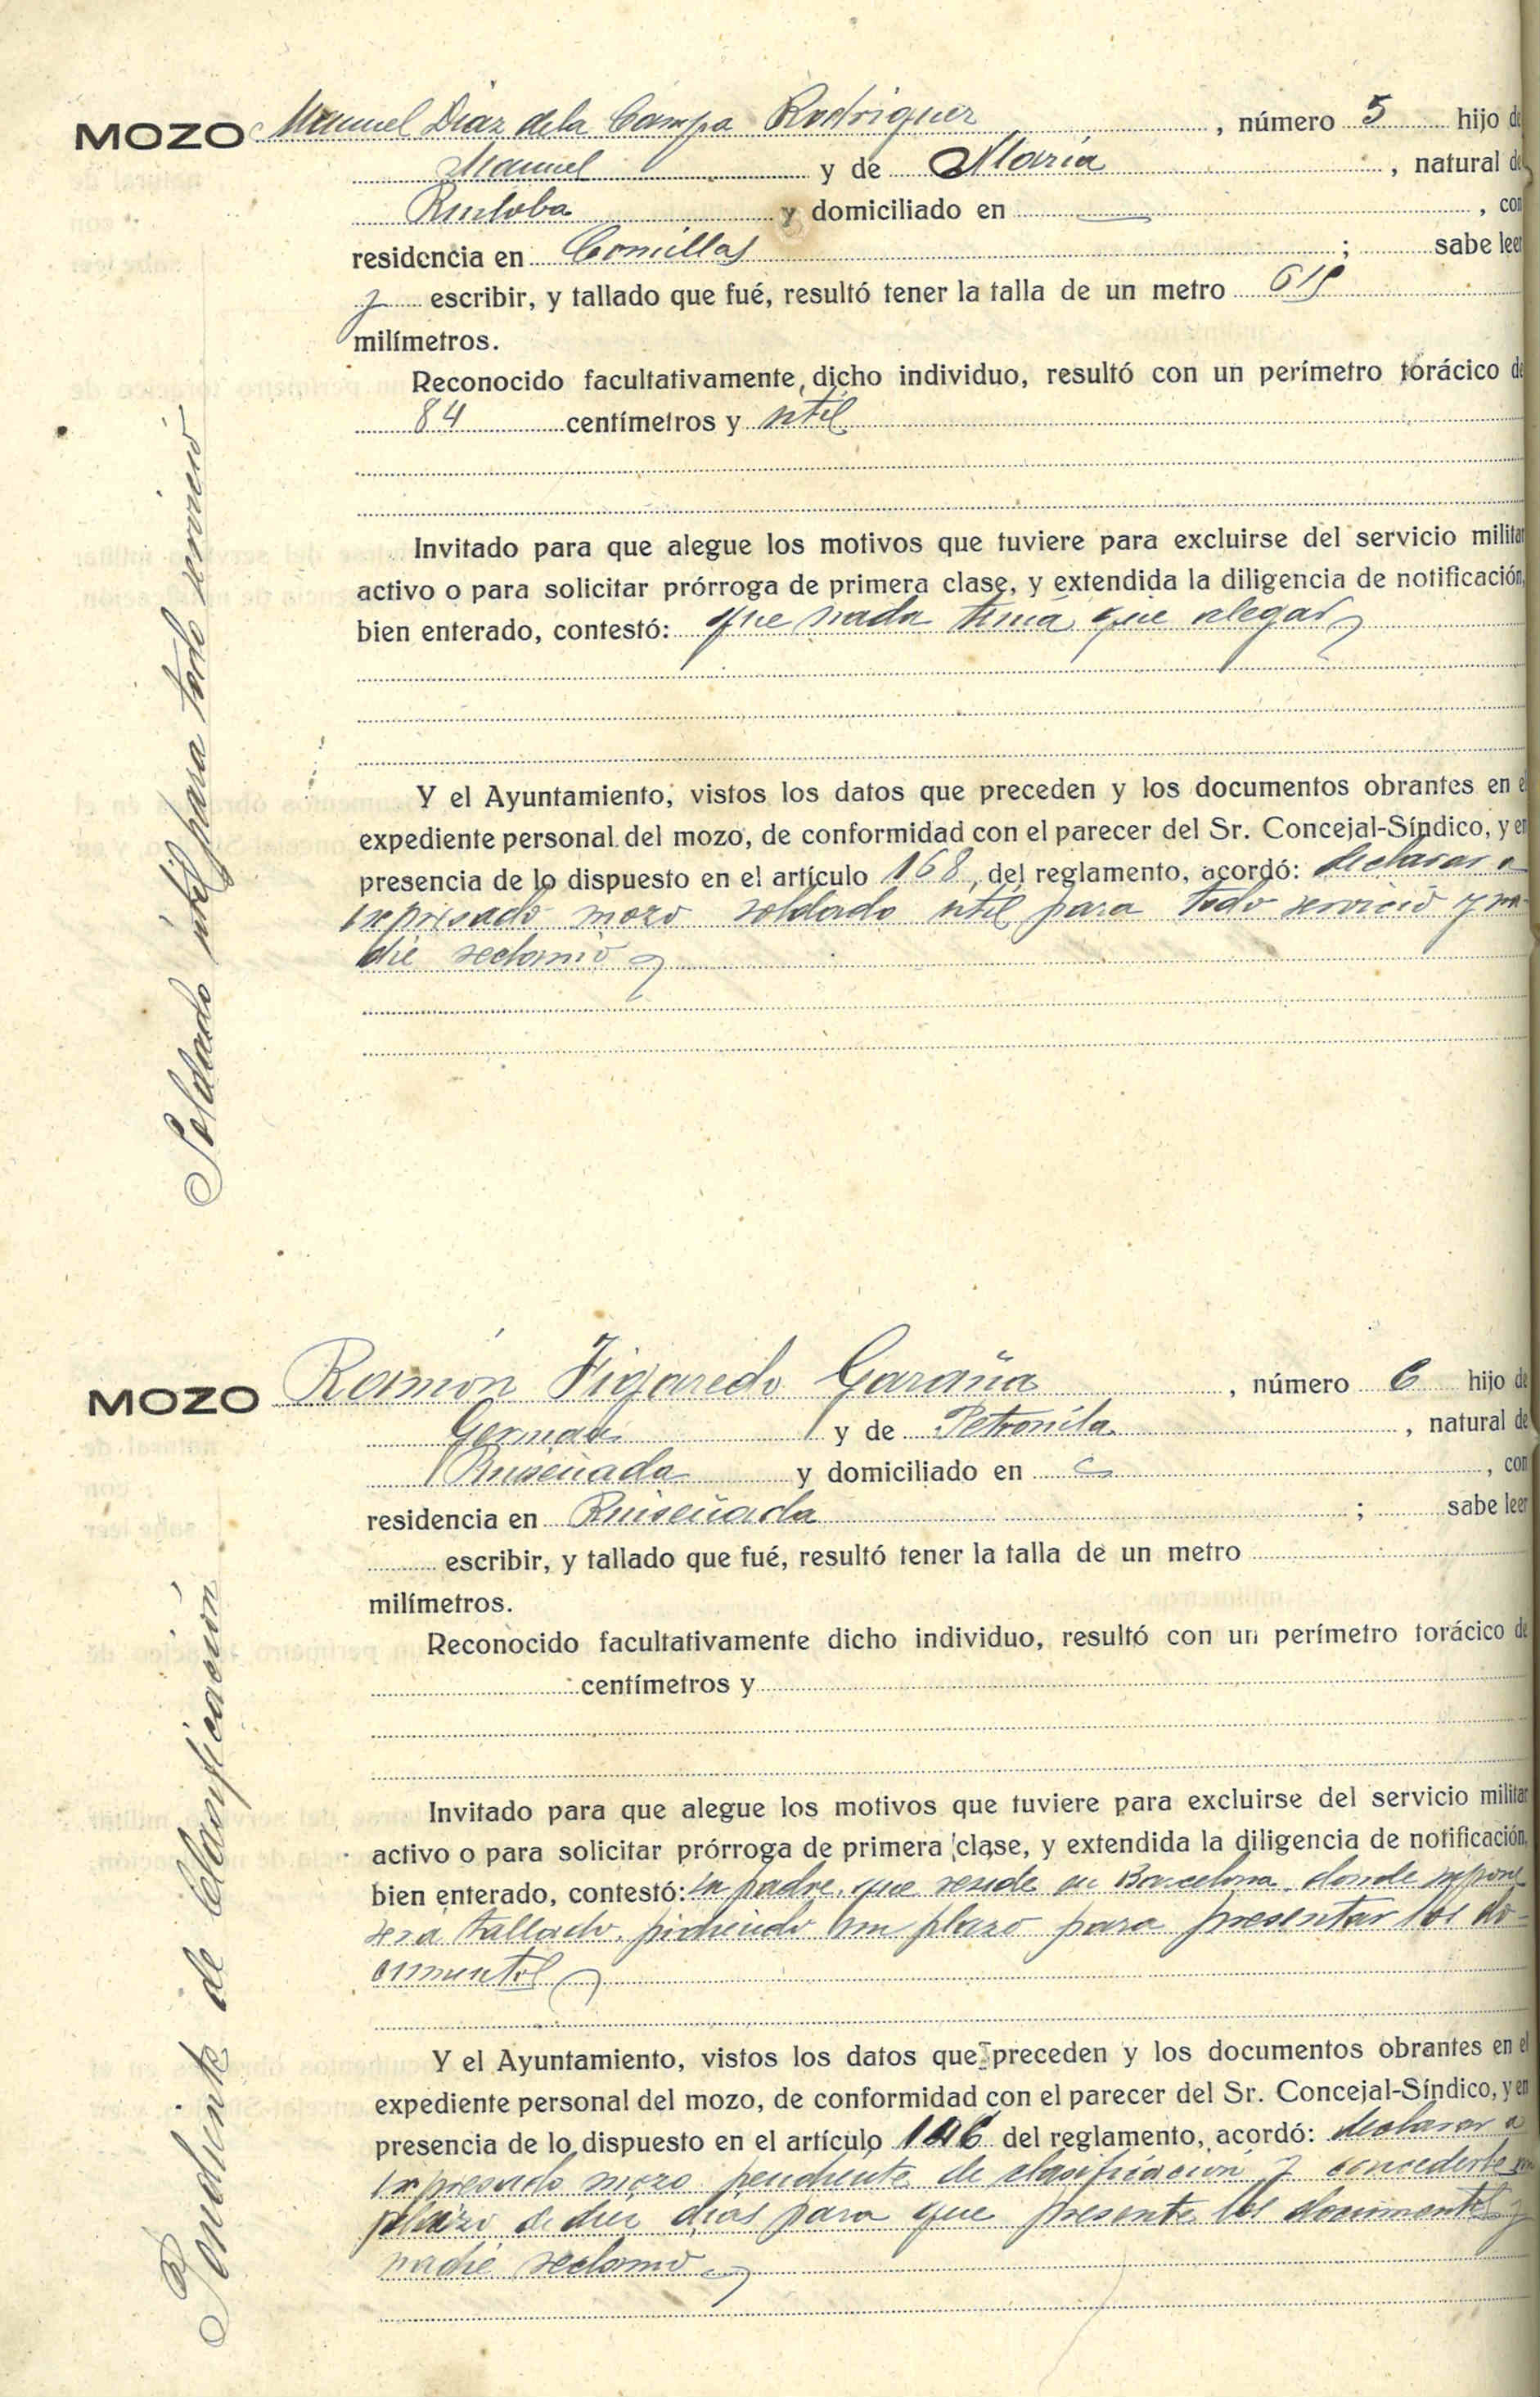 MOZO Manuel Diaz de la Campa Rodriguez, número 5 hijo de
Manuel y de María, natural de
Ruiloba y domiciliado en —, con
residencia en Comillas; sabe leer
y escribir, y tallado que fué, resultó tener la talla de un metro
milímetros.
Reconocido facultativamente dicho individuo, resultó con un perímetro torácico de
84 centímetros y útil
Invitado para que alegue los motivos que tuviere para excluirse del servicio militar
activo o para solicitar prórroga de primera clase, y extendida la diligencia de notificación,
bien enterado, contestó: que nada tenía que alegar
Y el Ayuntamiento, vistos los datos que preceden y los documentos obrantes en el
expediente personal del mozo, de conformidad con el parecer del Sr. Concejal-Síndico, y en
presencia de lo dispuesto en el artículo 168, del reglamento, acordó: declarar a
expresado mozo soldado útil para todo servicio y na-
die reclamó
Soldado útil para todo servicio
MOZO Ramón Figaredo Garaña, número 6 hijo de
German y de Petronila, natural de
Ruiseñada y domiciliado en, con
residencia en Ruiseñada; sabe leer
escribir, y tallado que fué, resultó tener la talla de un metro
milímetros.
Reconocido facultativamente dicho individuo, resultó con un perímetro torácico de
centímetros y
Invitado para que alegue los motivos que tuviere para excluirse del servicio militar
activo o para solicitar prórroga de primera clase, y extendida la diligencia de notificación,
bien enterado, contestó: su padre, que reside en Barcelona donde supone
será tallado, pidiendo un plazo para presentar los do-
cumentos
Y el Ayuntamiento, vistos los datos que preceden y los documentos obrantes en el
expediente personal del mozo, de conformidad con el parecer del Sr. Concejal-Síndico, y en
presencia de lo dispuesto en el artículo 146 del reglamento, acordó: declarar a
expresado mozo pendiente de clasificación y concederle un
plazo de diez días para que presente los documentos y
nadie reclamó
Pendiente de clasificación